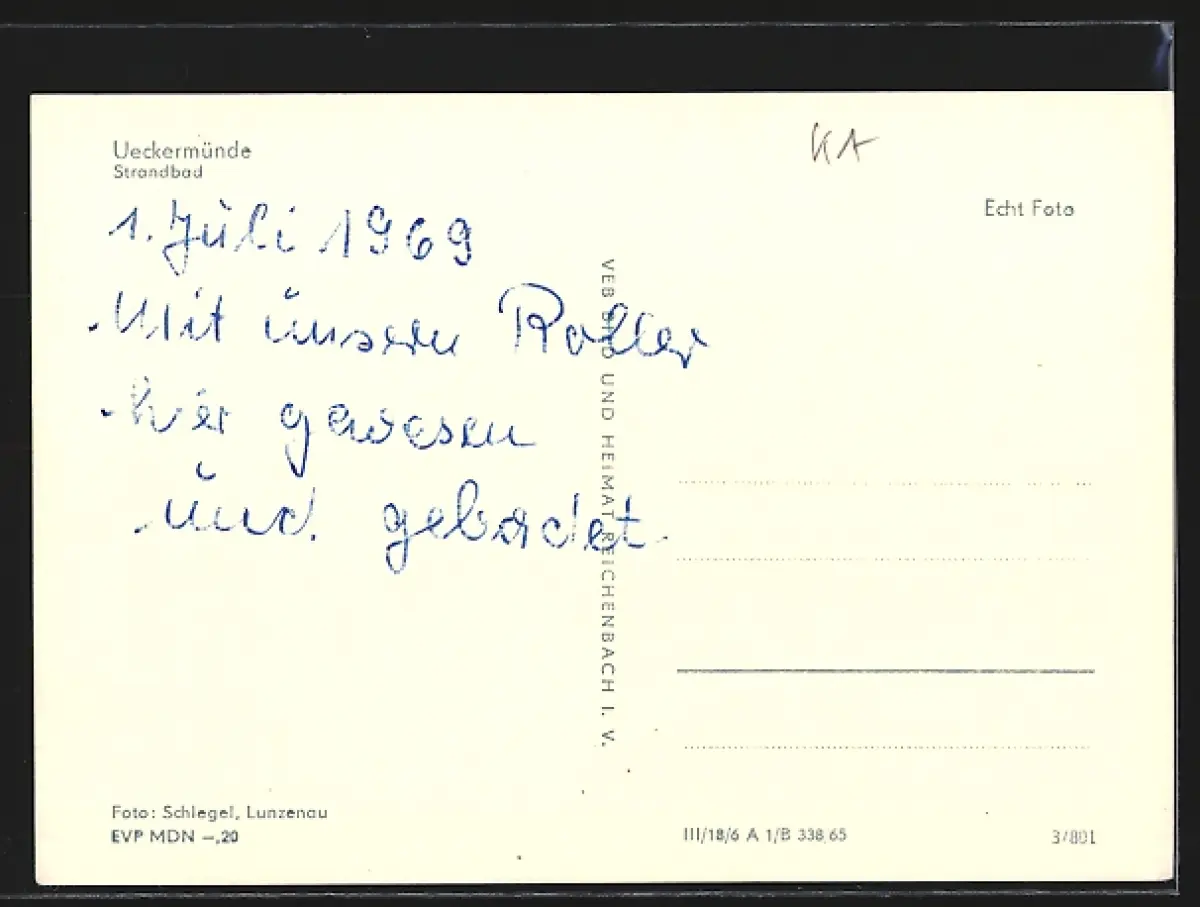 Ueckermünde
Strandbad
1. Juli 1969
Mit unsern Roller
hier gewesen
und gebadet
KA
Echt Foto
VEB BILD UND HEIMAT REICHENBACH I. V.
Foto: Schlegel, Lunzenau
EVP MDN –,20
III/18/6 A 1/B 338/65
3/801